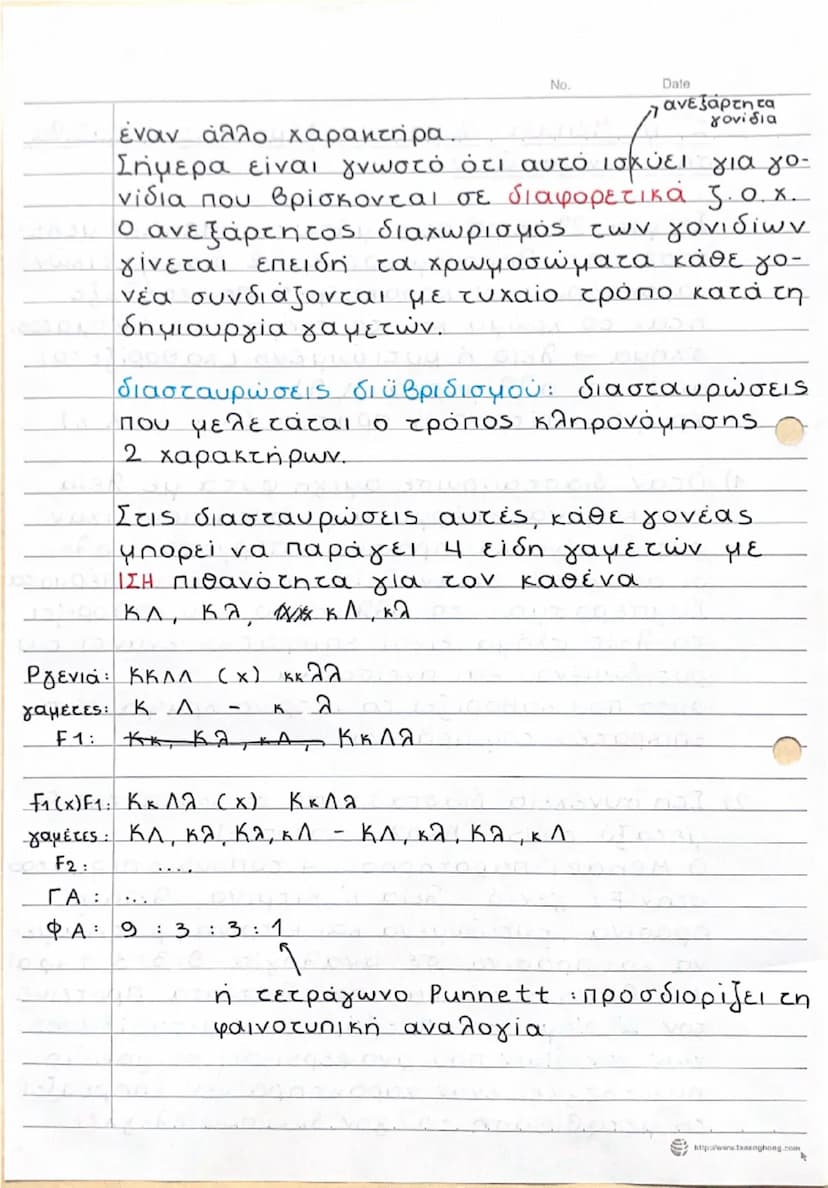 No. Date
ανεξάρτητα
γονίδια
έναν άλλο χαρακτήρα.
Σήμερα είναι γνωστό ότι αυτό ισχύει για γο-
νίδια που βρίσκονται σε διαφορετικά ζ.ο.χ.
Ο ανεξάρτητος διαχωρισμός των γονιδίων
γίνεται επειδή τα χρωμοσώματα κάθε γο-
νέα συνδιάζονται με τυχαίο τρόπο κατά τη
δημιουργία γαμετών.
διασταυρώσεις διϋβριδισμού: διασταυρώσεις
που μελετάται ο τρόπος κληρονόμησης
2 χαρακτήρων.
Στις διασταυρώσεις αυτές, κάθε γονέας
μπορεί να παράγει 4 είδη γαμετών με
ΙΣΗ πιθανότητα για τον καθένα
ΚΛ, Κλ, κΛ, κλ
Ργενιά: ΚΚΛΛ (x) κκλλ
γαμέτες: Κ Λ - κ λ
F1: Κκ, Κλ, κΛ, ΚκΛλ
F1(x)F1: ΚκΛλ (x) ΚκΛλ
γαμέτες: ΚΛ, κλ, Κλ, κΛ - ΚΛ, κλ, Κλ, κΛ
F2: ....
ΓΑ: ...
ΦΑ: 9 : 3 : 3 : 1
ή τετράγωνο Punnett : προσδιορίζει τη
φαινοτυπική αναλογία
http://www.tsanghong.com